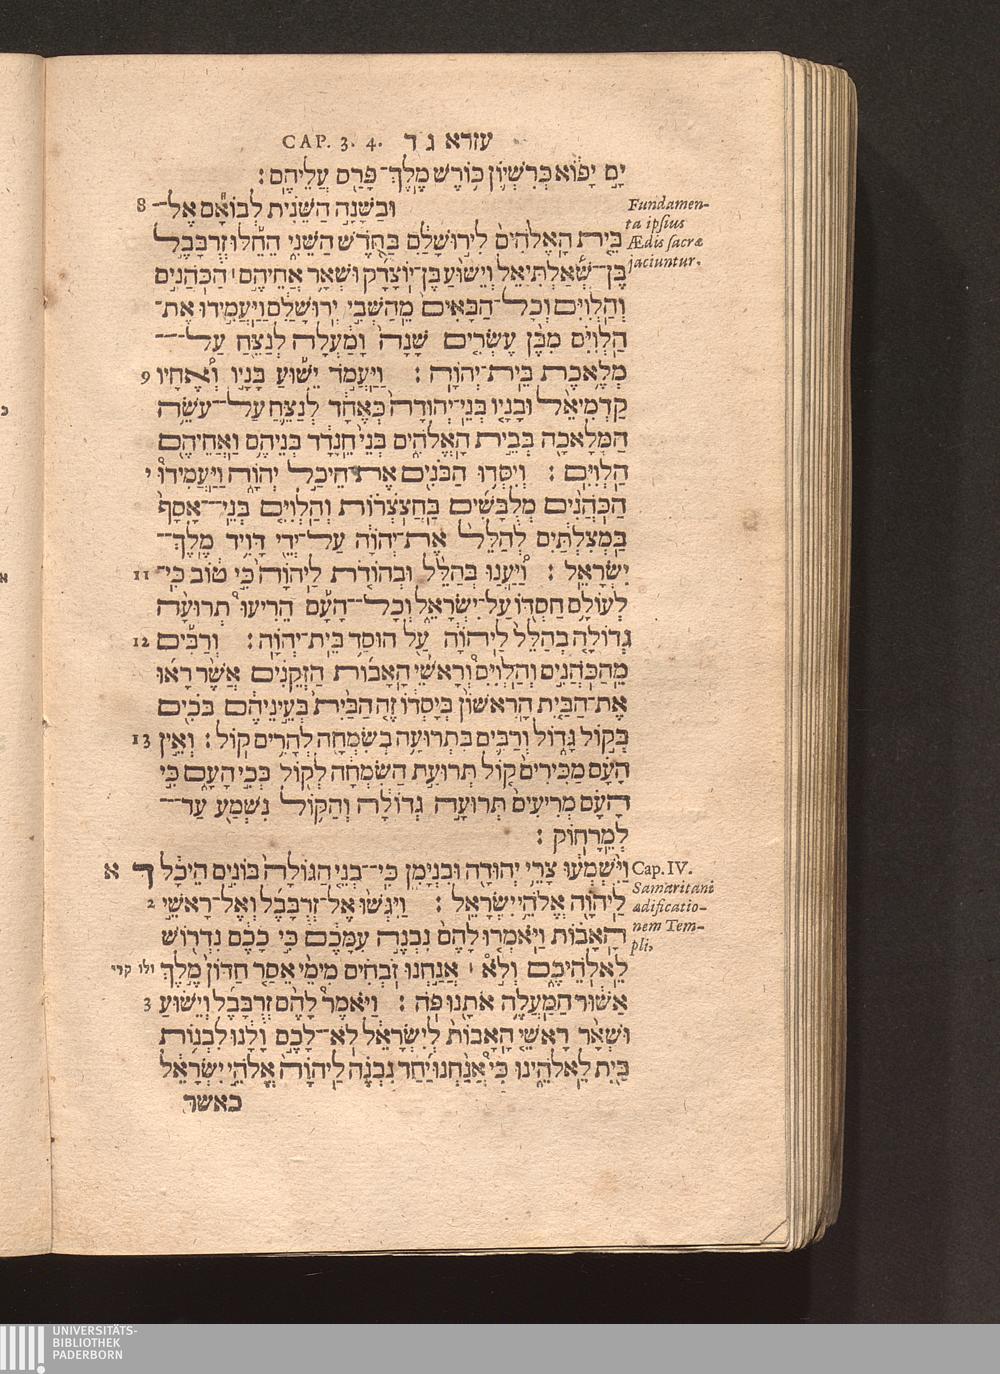 עזרא ג ד CAP. 3. 4.
יָם יָפוֹא כְּרִשְׁיוֹן כּוֹרֶשׁ מֶלֶךְ־פָּרַס עֲלֵיהֶם׃
8 וּבַשָּׁנָה הַשֵּׁנִית לְבוֹאָם אֶל־
בֵּית הָאֱלֹהִים לִירוּשָׁלִַם בַּחֹדֶשׁ הַשֵּׁנִי הֵחֵלּוּ זְרֻבָּבֶל
בֶּן־שְׁאַלְתִּיאֵל וְיֵשׁוּעַ בֶּן־יוֹצָדָק וּשְׁאָר אֲחֵיהֶם ׀ הַכֹּהֲנִים
וְהַלְוִיִּם וְכָל־הַבָּאִים מֵהַשְּׁבִי יְרוּשָׁלִַם וַיַּעֲמִידוּ אֶת־
הַלְוִיִּם מִבֶּן עֶשְׂרִים שָׁנָה וָמַעְלָה לְנַצֵּחַ עַל־
9 מְלֶאכֶת בֵּית־יְהוָה׃ וַיַּעֲמֹד יֵשׁוּעַ בָּנָיו וְאֶחָיו
קַדְמִיאֵל וּבָנָיו בְּנֵי־יְהוּדָה כְּאֶחָד לְנַצֵּחַ עַל־עֹשֵׂה
הַמְּלָאכָה בְּבֵית הָאֱלֹהִים בְּנֵי חֵנָדָד בְּנֵיהֶם וַאֲחֵיהֶם
י הַלְוִיִּם׃ וְיִסְּדוּ הַבֹּנִים אֶת־הֵיכַל יְהוָה וַיַּעֲמִידוּ
הַכֹּהֲנִים מְלֻבָּשִׁים בַּחֲצֹצְרוֹת וְהַלְוִיִּם בְּנֵי־אָסָף
בַּמְצִלְתַּיִם לְהַלֵּל אֶת־יְהוָה עַל־יְדֵי דָּוִיד מֶלֶךְ־
11 יִשְׂרָאֵל׃ וַיַּעֲנוּ בְּהַלֵּל וּבְהוֹדֹת לַיהוָה כִּי טוֹב כִּי־
לְעוֹלָם חַסְדּוֹ עַל־יִשְׂרָאֵל וְכָל־הָעָם הֵרִיעוּ תְרוּעָה
12 גְדוֹלָה בְהַלֵּל לַיהוָה עַל הוּסַד בֵּית־יְהוָה׃ וְרַבִּים
מֵהַכֹּהֲנִים וְהַלְוִיִּם וְרָאשֵׁי הָאָבוֹת הַזְּקֵנִים אֲשֶׁר רָאוּ
אֶת־הַבַּיִת הָרִאשׁוֹן בְּיָסְדוֹ זֶה הַבַּיִת בְּעֵינֵיהֶם בֹּכִים
13 בְּקוֹל גָּדוֹל וְרַבִּים בִּתְרוּעָה בְשִׂמְחָה לְהָרִים קוֹל׃ וְאֵין
הָעָם מַכִּירִים קוֹל תְּרוּעַת הַשִּׂמְחָה לְקוֹל בְּכִי הָעָם כִּי
הָעָם מְרִיעִים תְּרוּעָה גְדוֹלָה וְהַקּוֹל נִשְׁמַע עַד־
לְמֵרָחוֹק׃
א ד וַיִּשְׁמְעוּ צָרֵי יְהוּדָה וּבִנְיָמִן כִּי־בְנֵי הַגּוֹלָה בּוֹנִים הֵיכָל
2 לַיהוָה אֱלֹהֵי יִשְׂרָאֵל׃ וַיִּגְּשׁוּ אֶל־זְרֻבָּבֶל וְאֶל־רָאשֵׁי
הָאָבוֹת וַיֹּאמְרוּ לָהֶם נִבְנֶה עִמָּכֶם כִּי כָכֶם נִדְרוֹשׁ
לֵאלֹהֵיכֶם וְלֹא ׀ אֲנַחְנוּ זֹבְחִים מִימֵי אֵסַר חַדּוֹן מֶלֶךְ ולו קרי
3 אַשּׁוּר הַמַּעֲלֶה אֹתָנוּ פֹּה׃ וַיֹּאמֶר לָהֶם זְרֻבָּבֶל וְיֵשׁוּעַ
וּשְׁאָר רָאשֵׁי הָאָבוֹת לְיִשְׂרָאֵל לֹא־לָכֶם וָלָנוּ לִבְנוֹת
בַּיִת לֵאלֹהֵינוּ כִּי אֲנַחְנוּ יַחַד נִבְנֶה לַיהוָה אֱלֹהֵי יִשְׂרָאֵל
כאשר
Fundamen-
ta ipsius
Ædis sacræ
jaciuntur.
Cap. IV.
Samaritani
ædificatio-
nem Tem-
pli,
UNIVERSITÄTS-
BIBLIOTHEK
PADERBORN